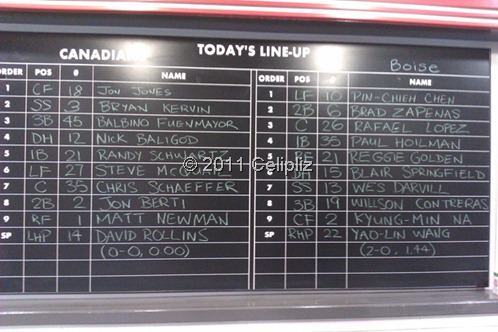 CANADIANS TODAY'S LINE-UP Boise
ORDER POS # NAME POS # NAME
1 CF 18 JON JONES 1 LF 10 PIN-CHIEH CHEN
2 SS 3 BRYAN KERVIN 2 2B 6 BRAD ZAPENAS
3 3B 45 BALBINO FUENMAYOR 3 C 26 RAFAEL LOPEZ
4 DH 12 NICK BALIGOD 4 1B 35 PAUL HOILMAN
5 1B 21 RANDY SCHWARTZ 5 RF 21 REGGIE GOLDEN
6 LF 27 STEVE McQUAIL 6 DH 15 BLAIR SPRINGFIELD
7 C 35 CHRIS SCHAEFFER 7 SS 13 WES DARVILL
8 2B 2 JON BERTI 8 3B 19 WILLSON CONTRERAS
9 RF 1 MATT NEWMAN 9 CF 2 KYUNG-MIN NA
SP LHP 14 DAVID ROLLINS SP RHP 22 YAO-LIN WANG
(0-0, 0.00) (2-0, 1.44)
© 2011 Cellpliz